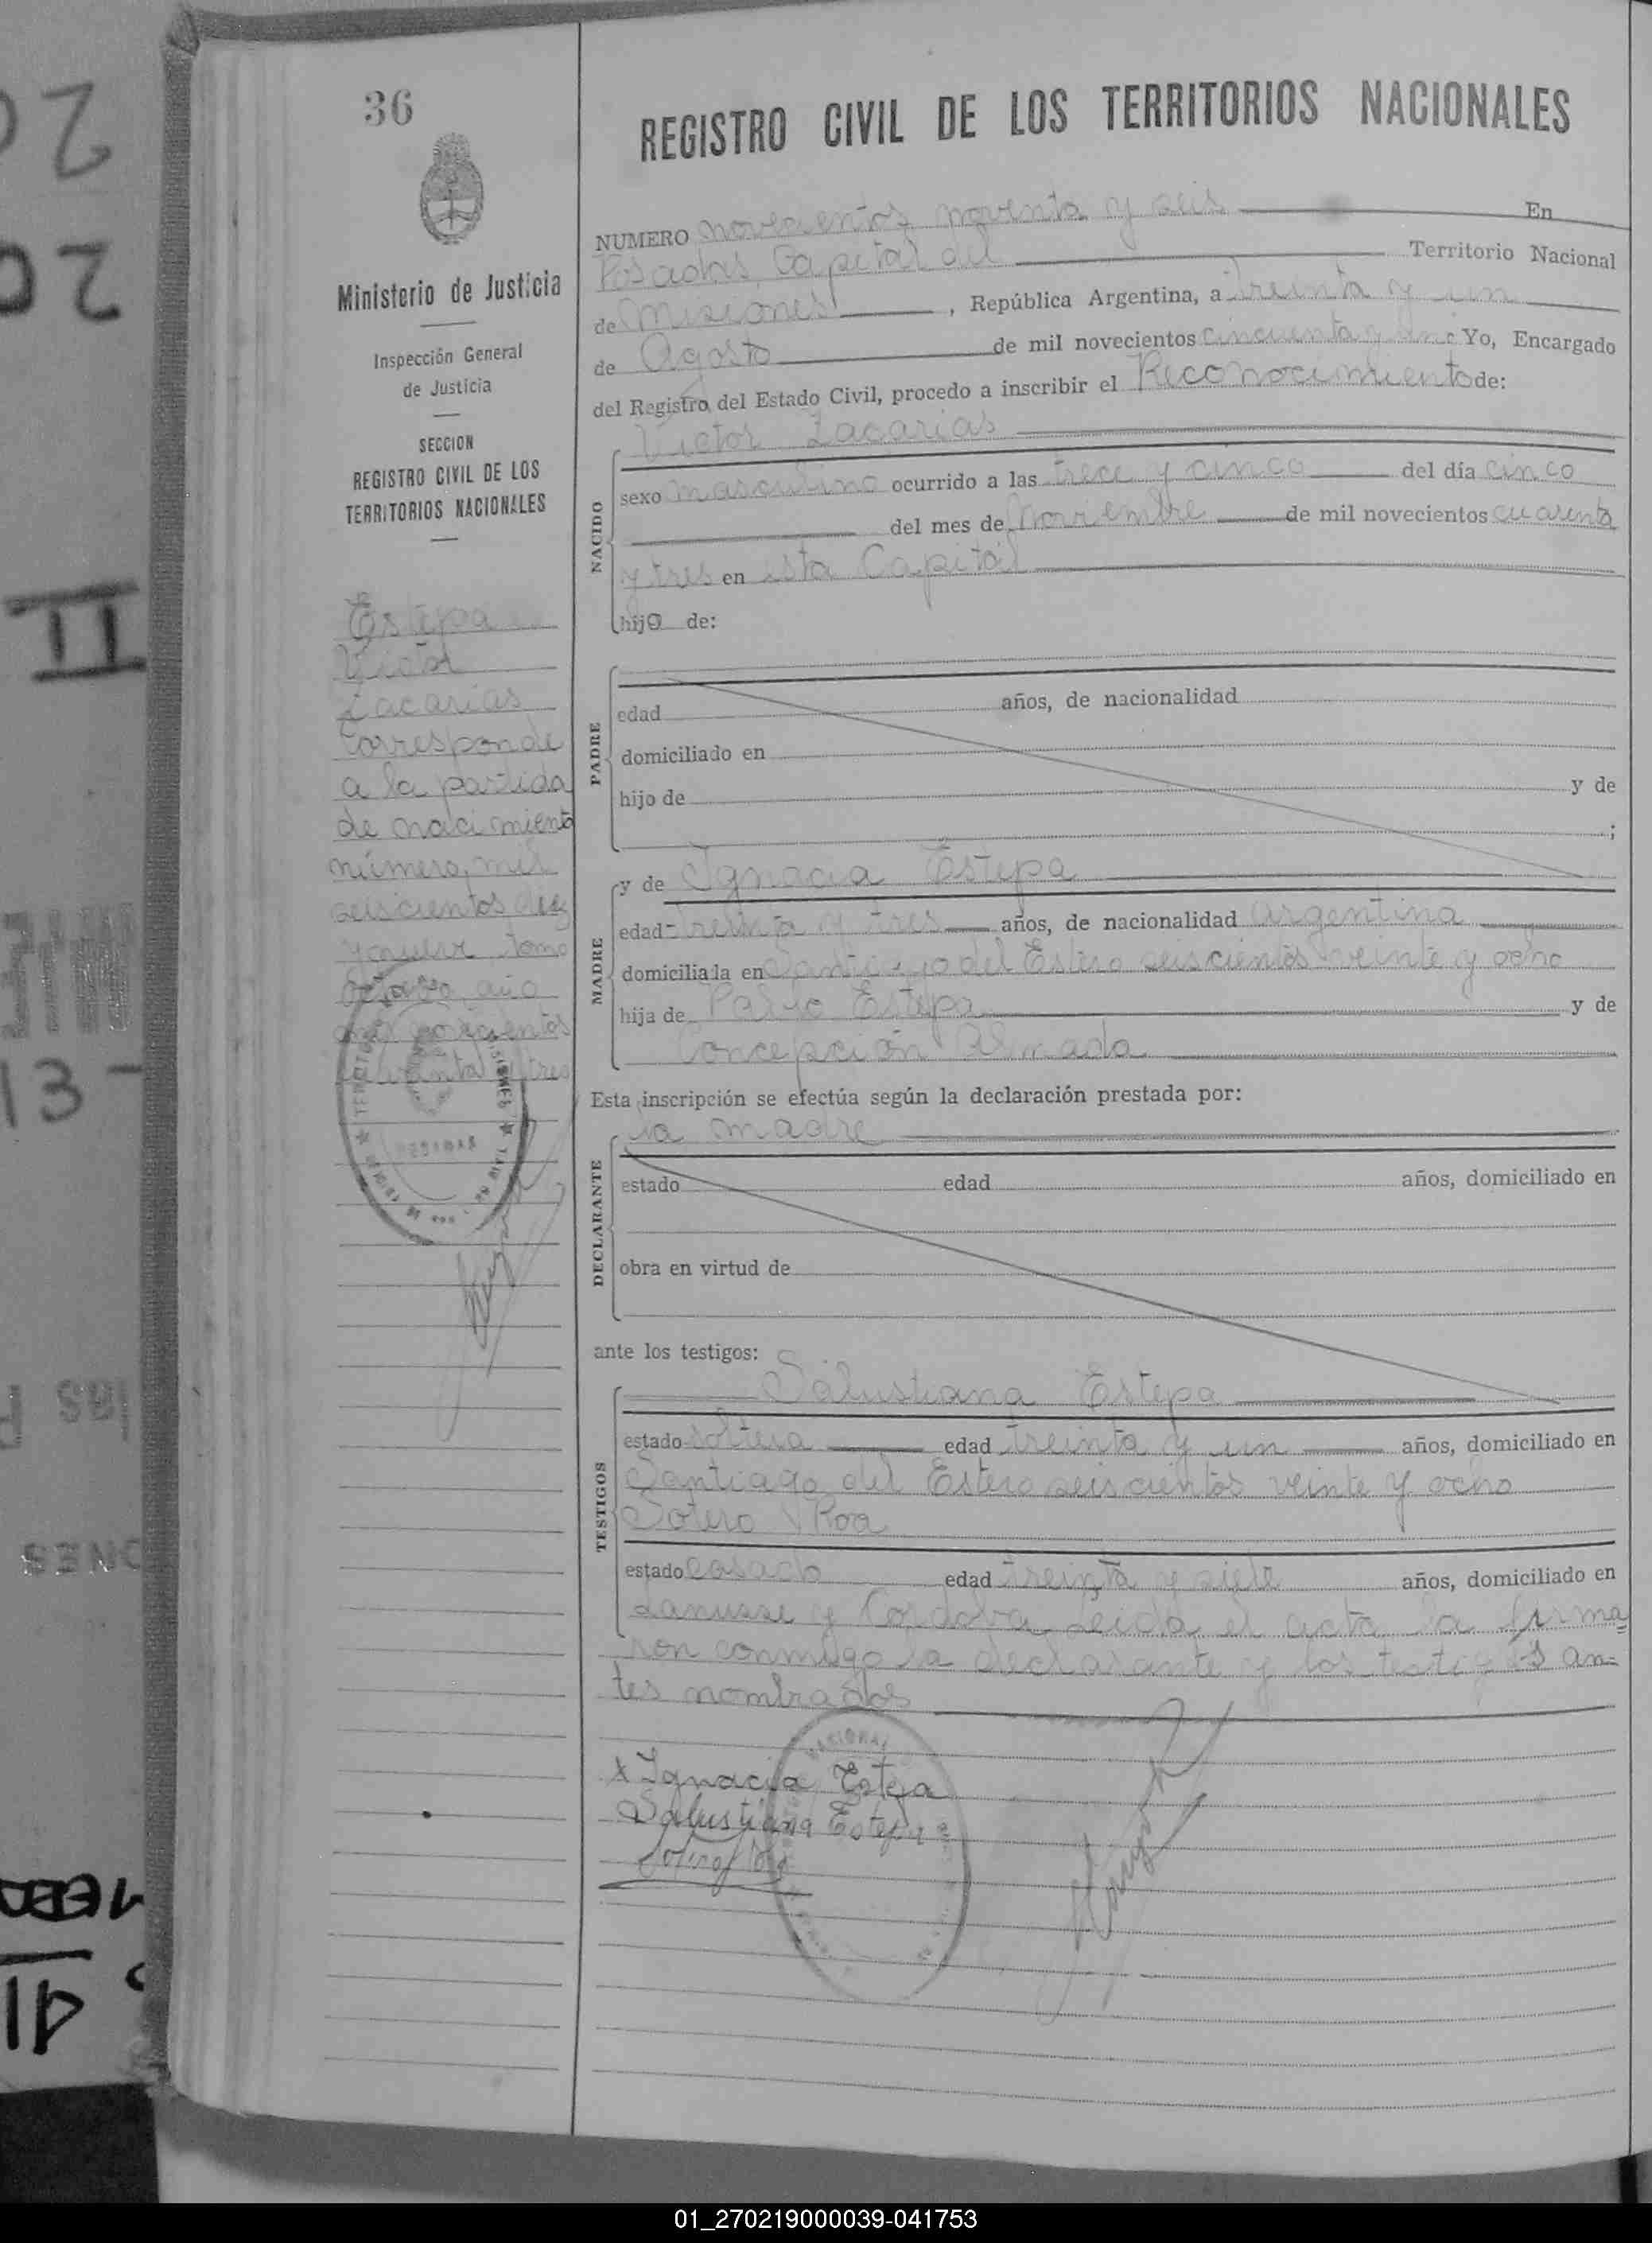 36
REGISTRO CIVIL DE LOS TERRITORIOS NACIONALES
Ministerio de Justicia
Inspección General
de Justicia
SECCION
REGISTRO CIVIL DE LOS
TERRITORIOS NACIONALES
Estepa
Victor
Zacarias
Corresponde
a la partida
de nacimiento
número mil
seiscientos diez
y nueve tomo
octavo año
mil novecientos
cuarenta y tres
NUMERO novecientos noventa y seis En
Posadas, Capital del Territorio Nacional
de Misiones, República Argentina, a treinta y un
de Agosto de mil novecientos cincuenta y uno Yo, Encargado
del Registro del Estado Civil, procedo a inscribir el Reconocimiento de:
NACIDO
Victor Zacarias
sexo masculino ocurrido a las trece y cinco del día cinco
del mes de Noviembre de mil novecientos cuarenta
y tres en esta Capital
hijo de:
PADRE
edad años, de nacionalidad
domiciliado en
hijo de y de
;
MADRE
y de Ignacia Estepa
edad treinta y tres años, de nacionalidad argentina
domiciliada en Santiago del Estero seiscientos veinte y ocho
hija de Pablo Estepa y de
Concepción Almada
Esta inscripción se efectúa según la declaración prestada por:
DECLARANTE
la madre
estado edad años, domiciliado en
obra en virtud de
ante los testigos:
TESTIGOS
Salustiana Estepa
estado soltera edad treinta y un años, domiciliado en
Santiago del Estero seiscientos veinte y ocho
Sotero Roa
estado casado edad treinta y siete años, domiciliado en
Lanusse y Cordoba Leida el acta la firma
ron conmigo la declarante y los testigos an=
tes nombrados
x Ignacia Estepa
Salustiana Estepa
Sotero Roa
01_270219000039-041753